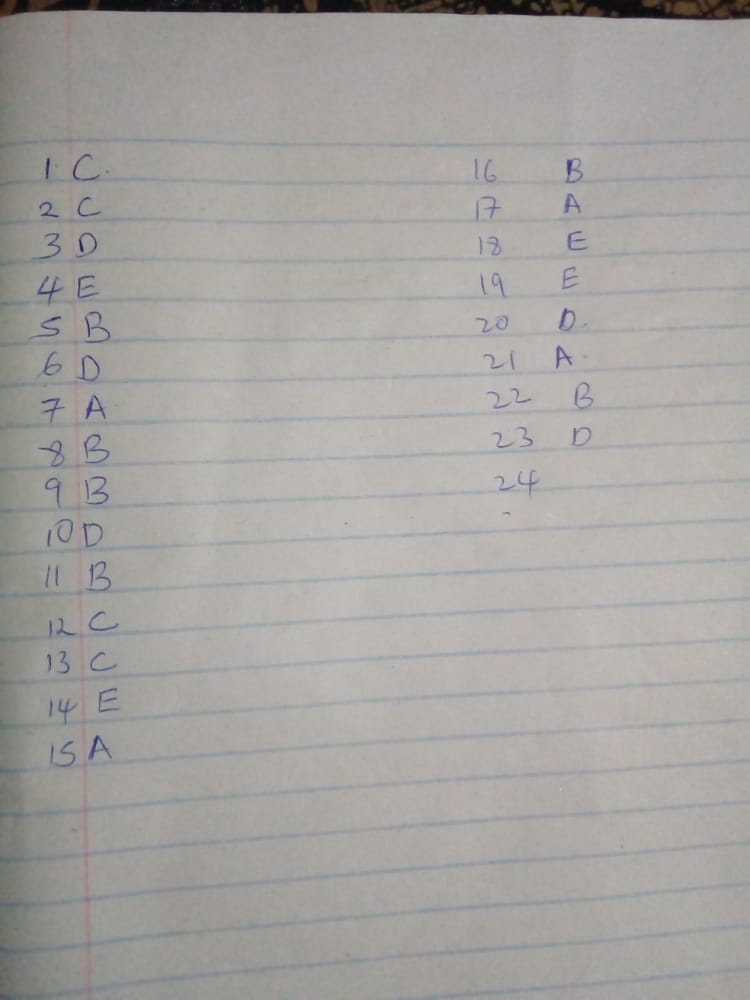 1. C.
2 C
3 D
4 E
5 B
6 D
7 A.
8 B
9 B
10 D
11 B
12 C
13 C
14 E
15 A
16 B
17 A
18 E
19 E
20 D.
21 A.
22 B
23 D
24
-